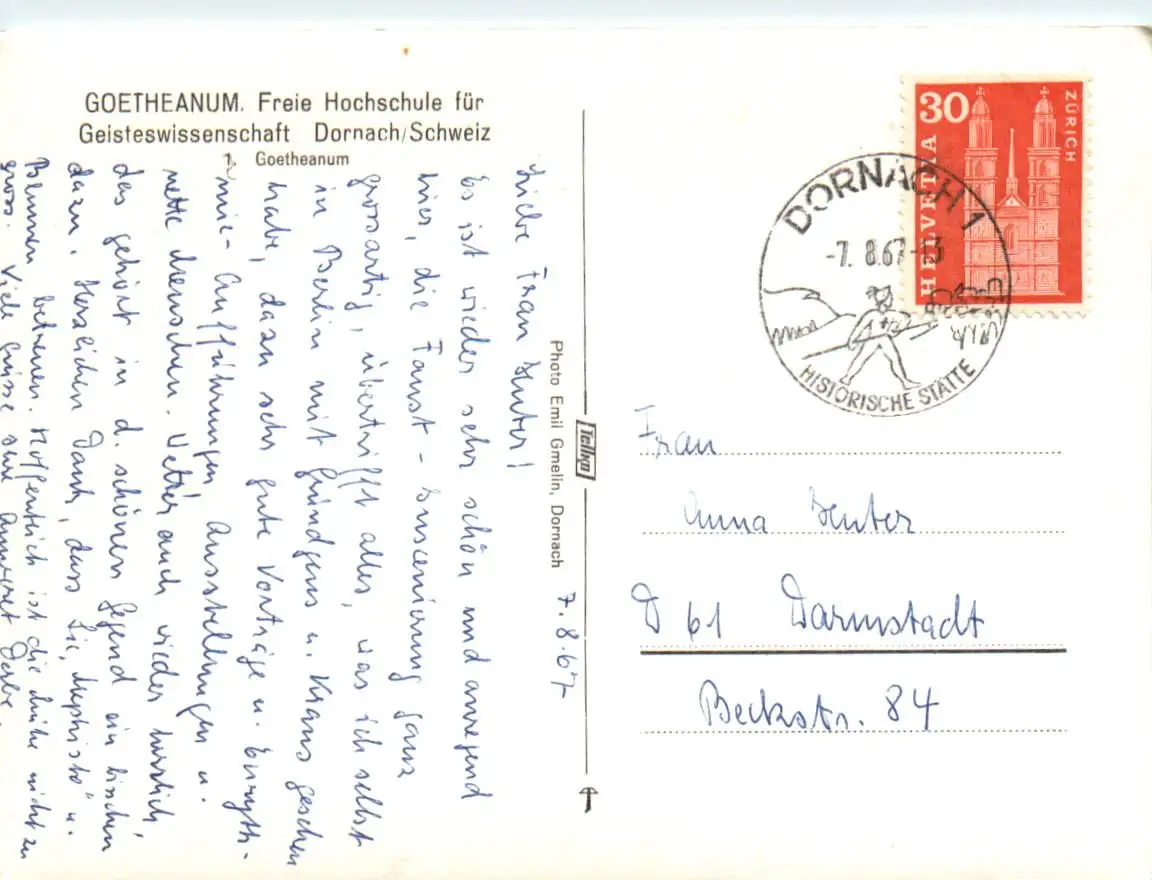 GOETHEANUM. Freie Hochschule für
Geisteswissenschaft Dornach/Schweiz
1. Goetheanum
7.8.67
Liebe Frau Huter!
Es ist wieder sehr schön und anregend
hier, die Faust-Inscenierung ganz
grossartig, übertrifft alles, was ich selbst
in Berlin mit Gründgens u. Kraus gesehen
habe, dazu sehr gute Vorträge u. Euryth-
mie-Aufführungen, Ausstellungen u.
nette Menschen. Wetter auch wieder herrlich,
das gehört in d. schönen Gegend ein bischen
dazu. Herzlichen Dank, dass Sie "Mephisto" u.
betreuen. Hoffentlich ist die Mühe nicht zu
gross. Viele Grüsse Ihre
Photo Emil Gmelin, Dornach
Tellko
30
HELVETIA
ZÜRICH
DORNACH 1
-7. 8.67-13
HISTORISCHE STÄTTE
Frau
Anna Huter
D 61 Darmstadt
Beckstr. 84